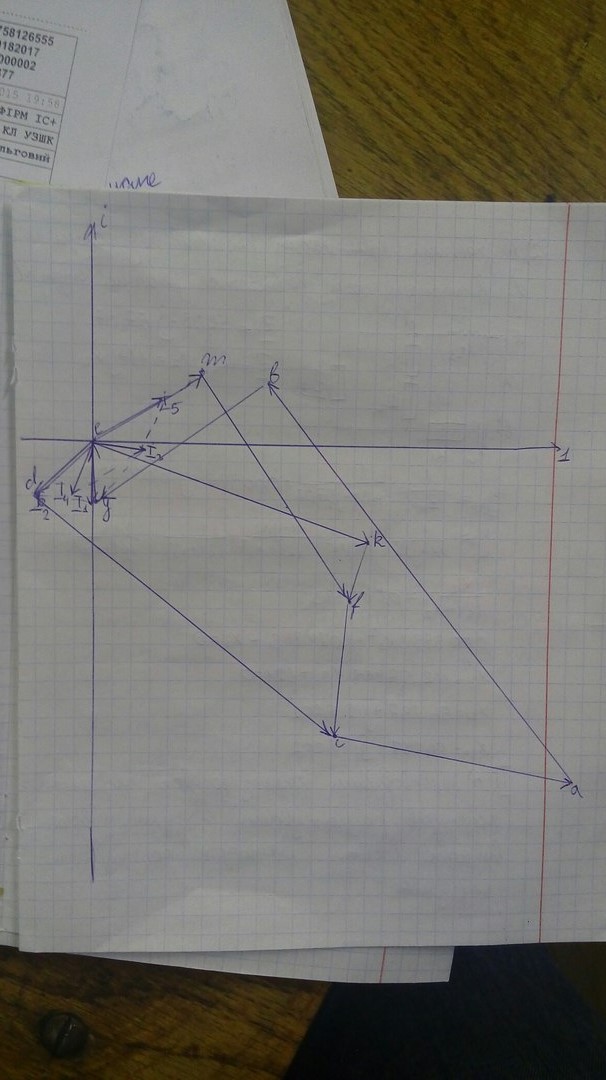 758126555
0182017
000002
877
015 19:58
ФІРМ ІС+
КЛ УЗШК
льговий
i
m
в
I5
e
1
I3
d
I4
I1
g
I2
k
f
c
a